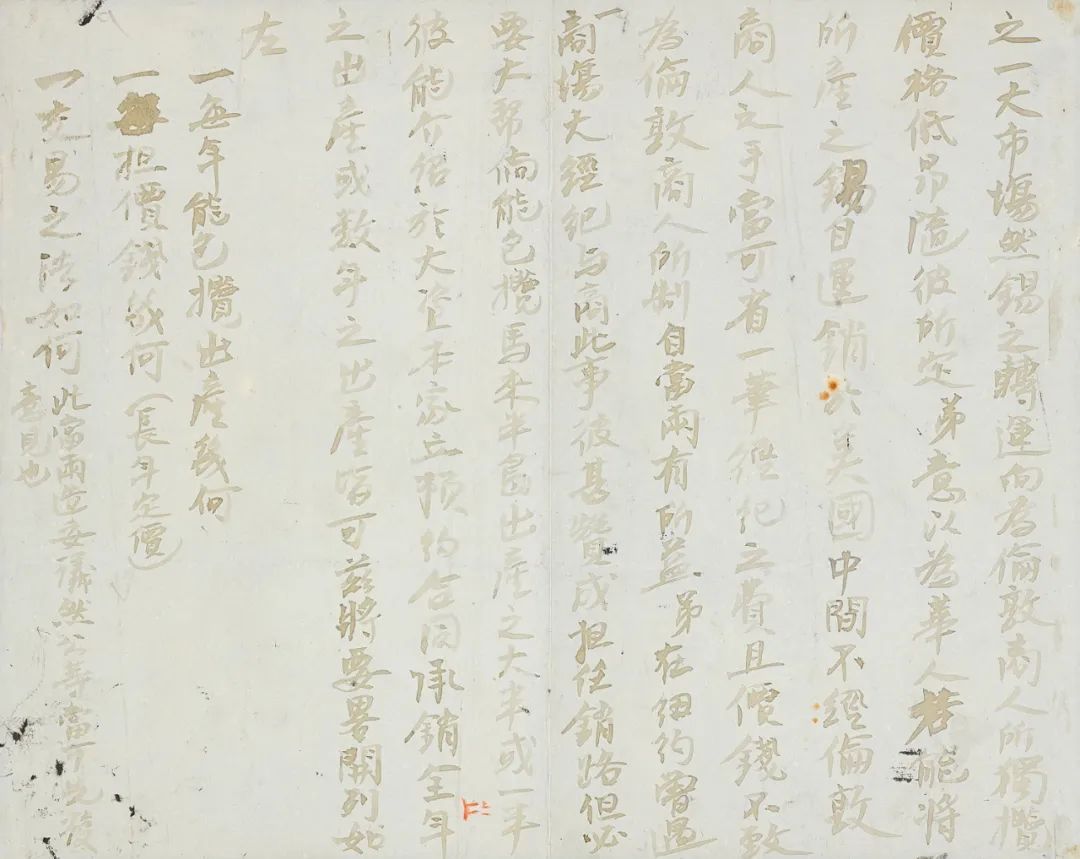 之一大市場然錫之轉運向為倫敦商人所獨攬
價格低昂隨彼所定弟意以為華人若能將
所產之錫自運銷於美國中間不經倫敦
商人之手當可省一筆經紀之費且價錢不致
為倫敦商人所制自當兩有所益弟在紐約曾遇
一商場大經紀与商此事彼甚贊成担任銷路但必
要大幫倘能包攬馬來半島出產之大半或一半
彼能介紹於大資本家立預約合同承銷全年
之出產或数年之出產皆可茲將要畧開列如
左
一每年能包攬出產幾何
一每担價錢幾何(長年定價)
一交易之法如何 此當兩造妥議然公等當可先發
意見也